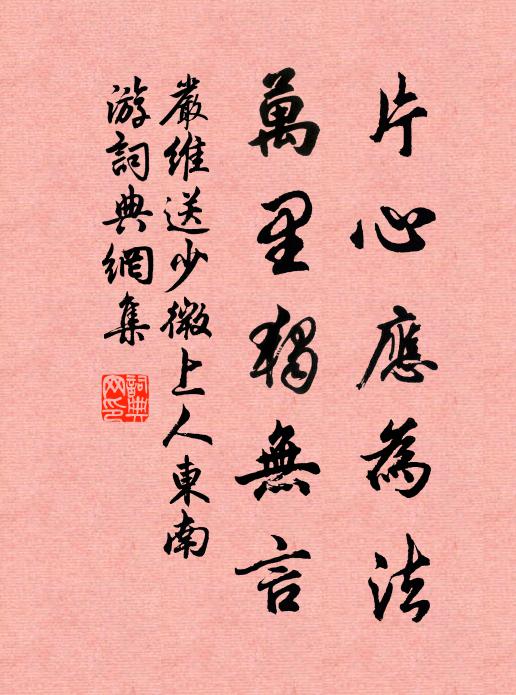 片心應為法
萬里獨無言
嚴維送少微上人東南
游詞典網集
詞典
网印